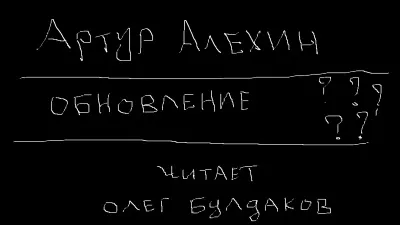 Артур Алехин
ОБНОВЛЕНИЕ ? ? ? ? ?
ЧИТАЕТ
ОЛЕГ БУЛДАКОВ